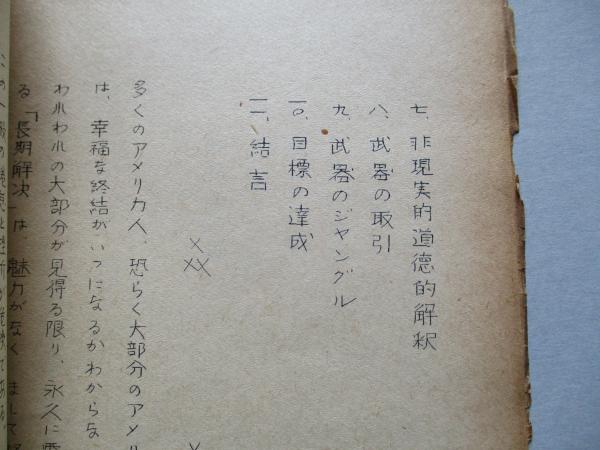 七、非現実的道徳的解釈
八、武器の取引
九、武器のジャングル
一〇、目標の達成
一一、結言
×
××
多くのアメリカ人、恐らく大部分のアメリ
は、幸福な終結がいつになるかわからな
われわれの大部分が見得る限り、永久に
る「長期解決」は、魅力がなく、まして